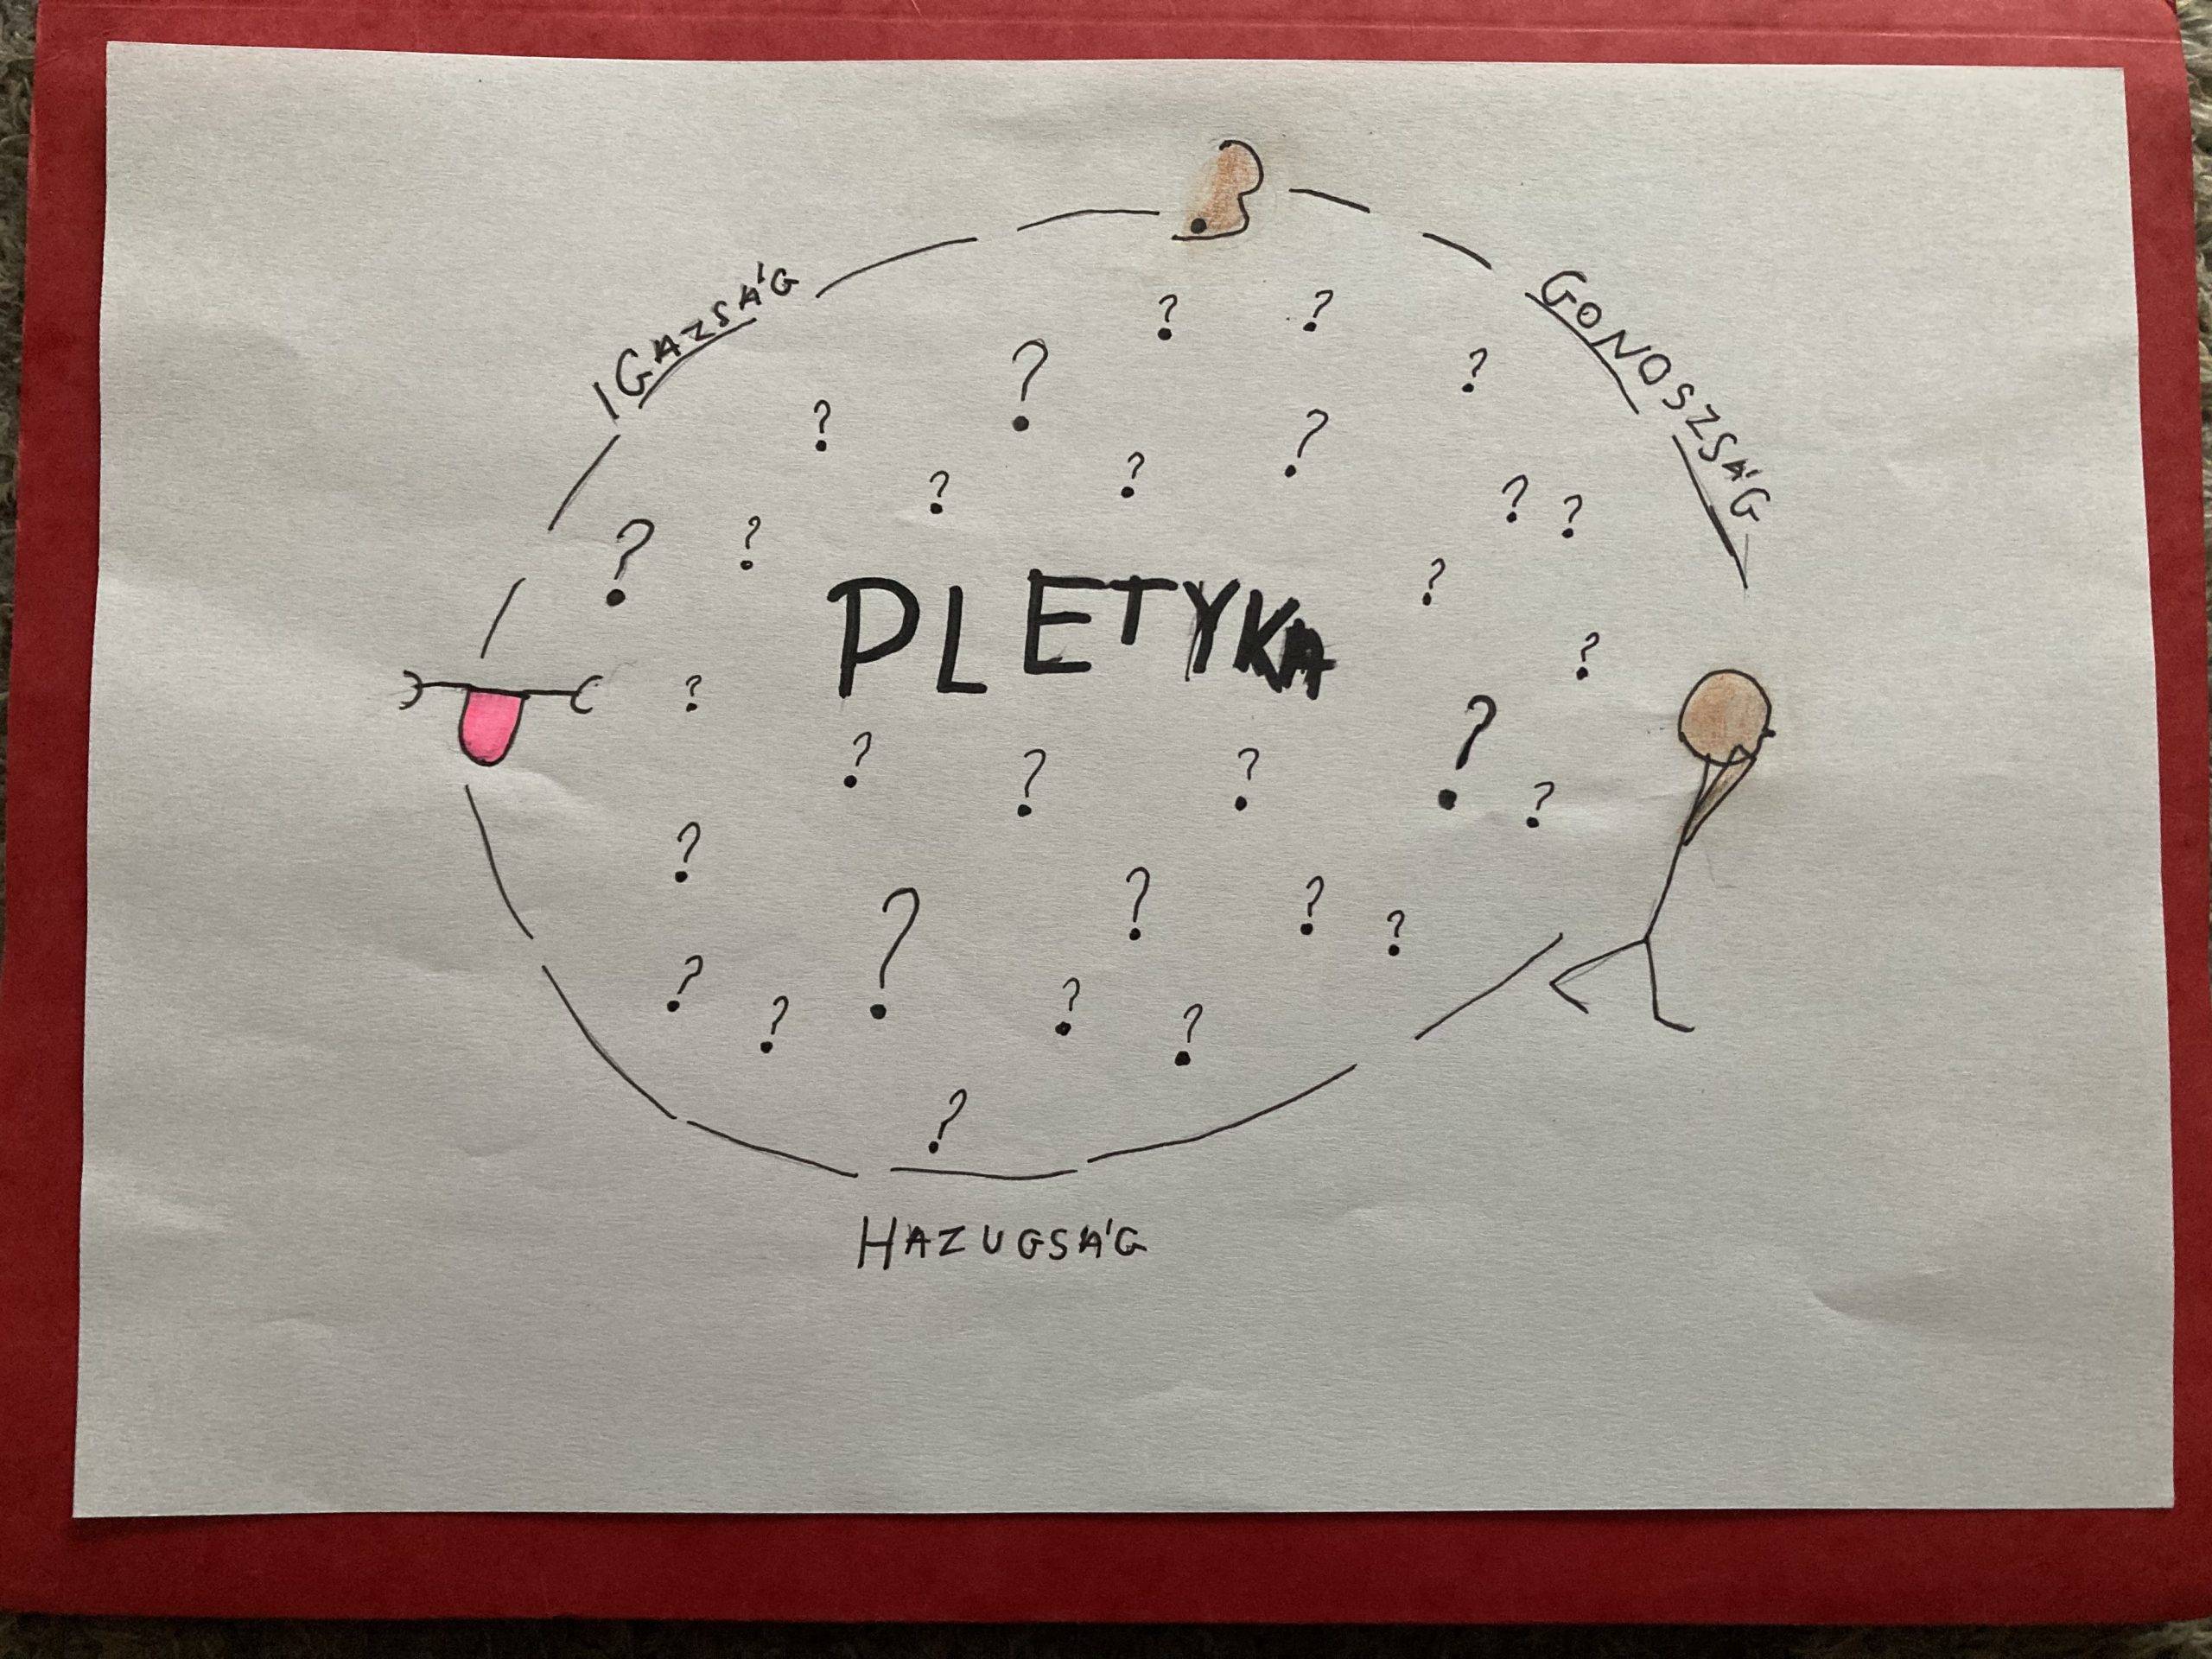 IGAZSÁG
GONOSZSÁG
? ?
? ?
? ?
? ? ? ?
? ?
PLETYKA
?
? ?
? ? ? ? ?
?
? ? ? ?
? ? ? ?
?
HAZUGSÁG